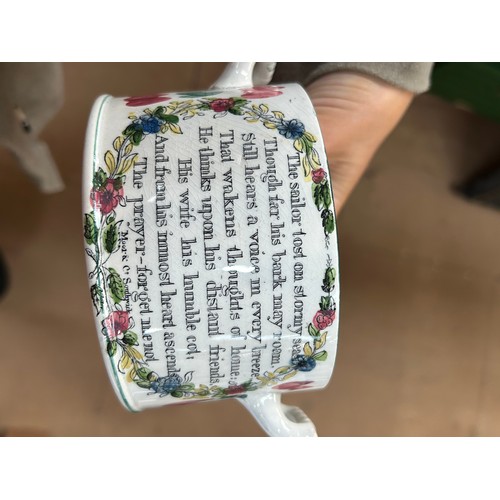 The sailor tost on stormy seas
Though far his bark may roam
Still hears a voice in every breeze
That wakens thoughts of home:
He thinks upon his distant friends,
His wife his humble cot;
And from his inmost heart ascends
The prayer—forget me not
& Co